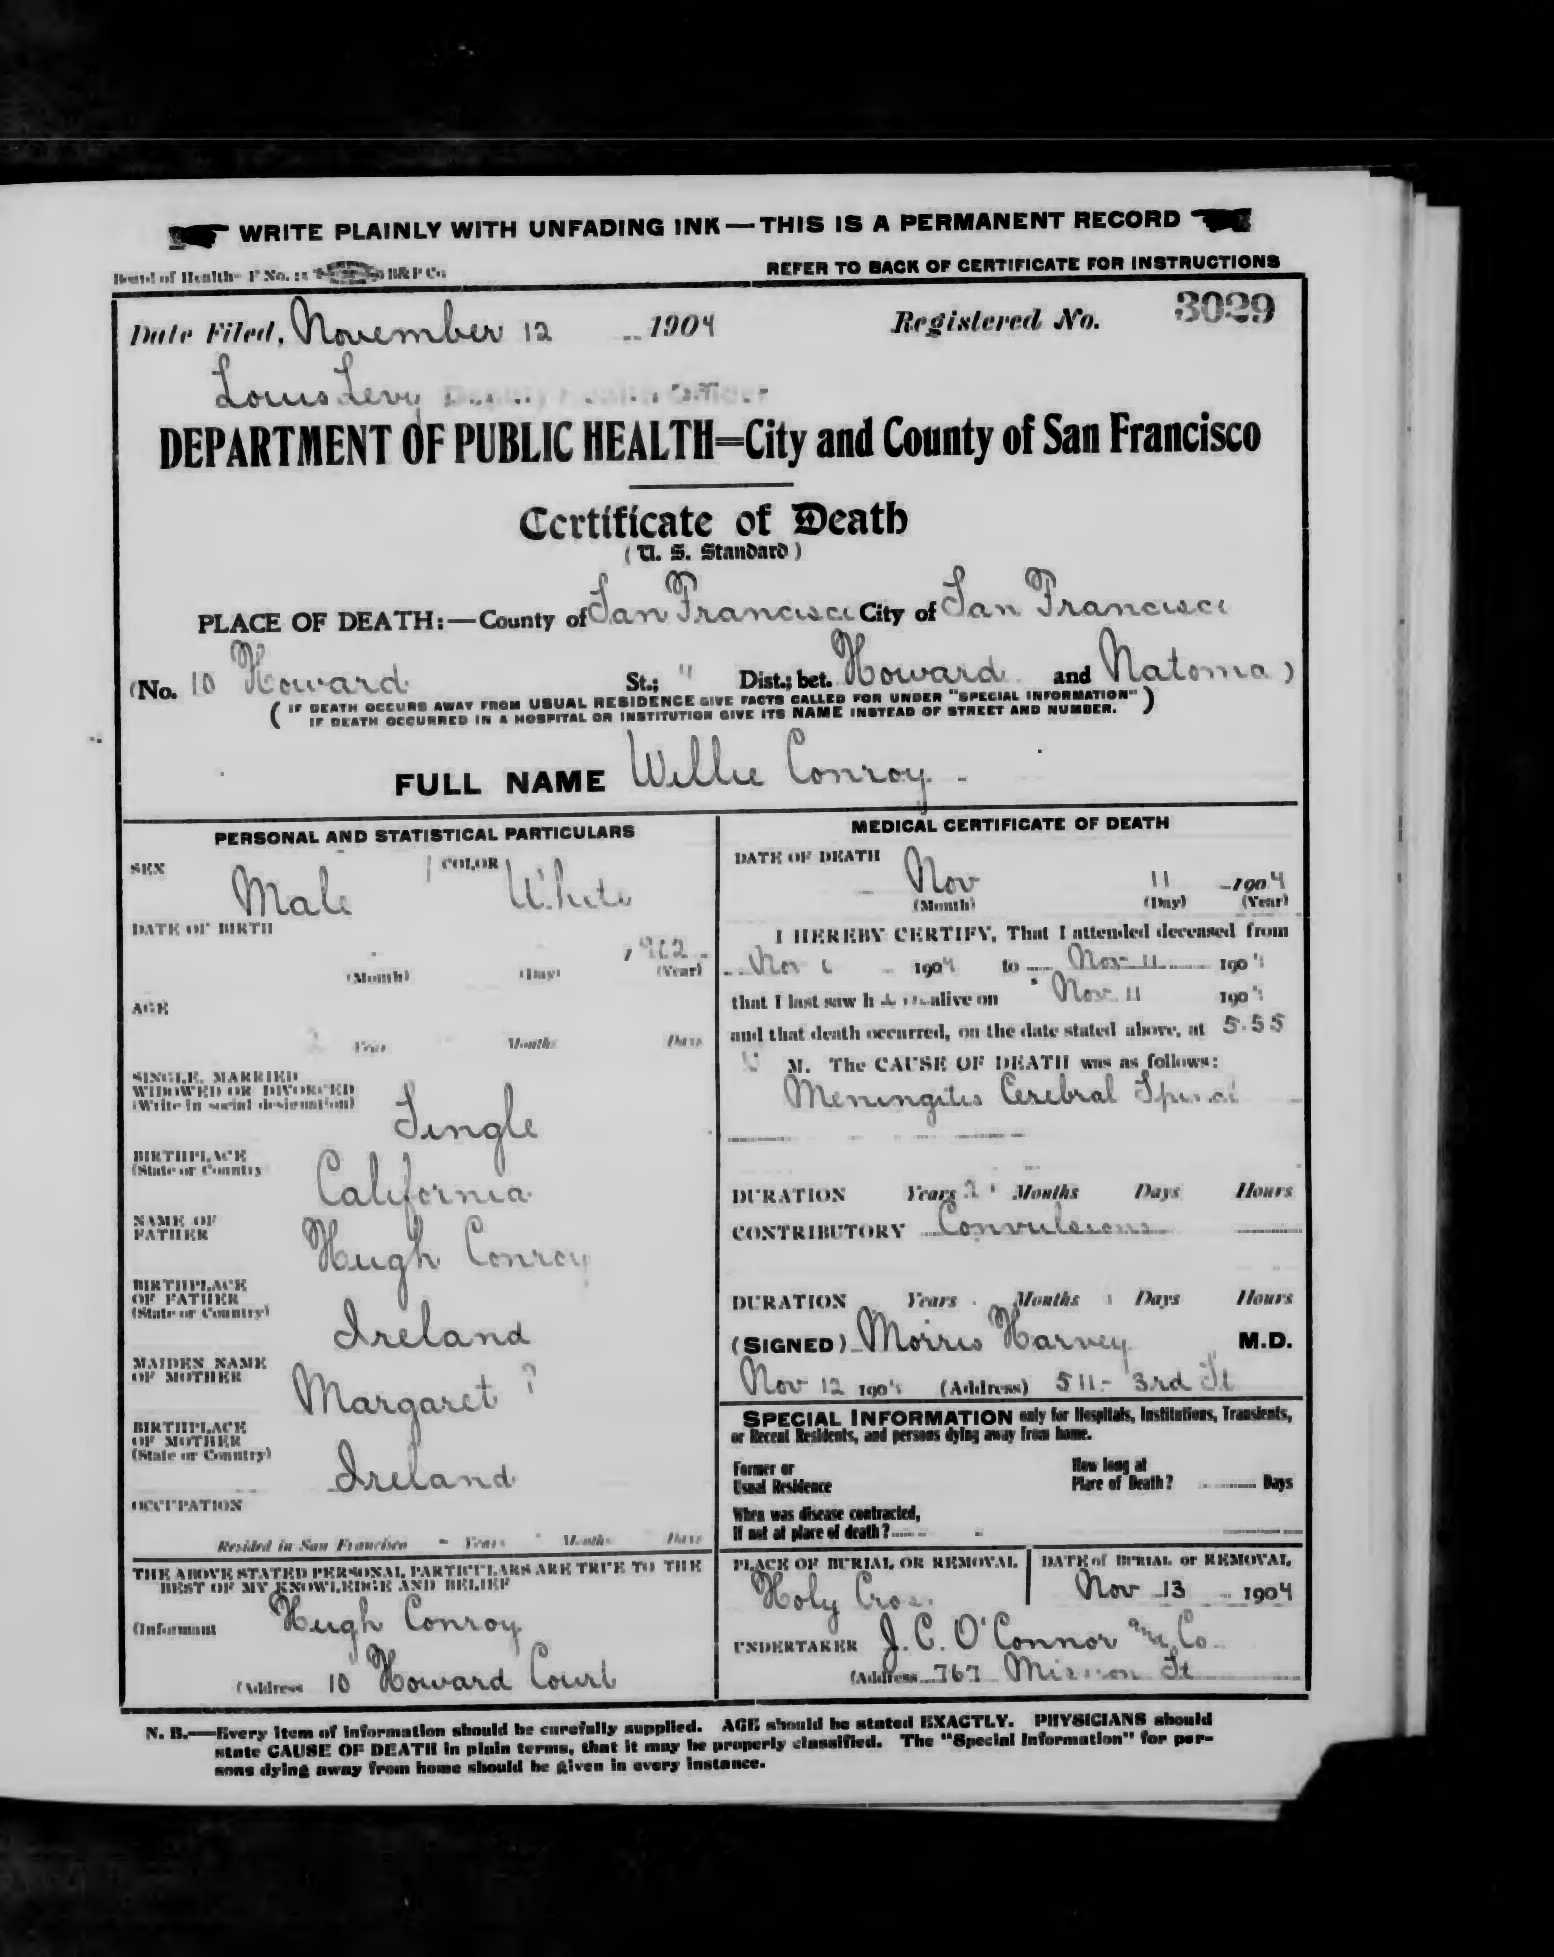 WRITE PLAINLY WITH UNFADING INK — THIS IS A PERMANENT RECORD
Board of Health— F No. B&P Co
REFER TO BACK OF CERTIFICATE FOR INSTRUCTIONS
Date Filed, November 12 1904 Registered No. 3029
Louis Levy Deputy Health Officer
DEPARTMENT OF PUBLIC HEALTH=City and County of San Francisco
Certificate of Death
(U. S. Standard)
PLACE OF DEATH:—County of San Francisco City of San Francisco
(No. 10 Howard St.; Dist.; bet. Howard and Natoma)
(IF DEATH OCCURS AWAY FROM USUAL RESIDENCE GIVE FACTS CALLED FOR UNDER "SPECIAL INFORMATION"
IF DEATH OCCURRED IN A HOSPITAL OR INSTITUTION GIVE ITS NAME INSTEAD OF STREET AND NUMBER.)
FULL NAME Willie Conroy
PERSONAL AND STATISTICAL PARTICULARS
SEX Male COLOR White
DATE OF BIRTH
1902
(Month) (Day) (Year)
AGE
2 Year Months Days
SINGLE, MARRIED
WIDOWED OR DIVORCED
(Write in social designation) Single
BIRTHPLACE
(State or Country California
NAME OF
FATHER Hugh Conroy
BIRTHPLACE
OF FATHER
(State or Country) Ireland
MAIDEN NAME
OF MOTHER Margaret ?
BIRTHPLACE
OF MOTHER
(State or Country) Ireland
OCCUPATION
Resided in San Francisco - Years Months Days
THE ABOVE STATED PERSONAL PARTICULARS ARE TRUE TO THE
BEST OF MY KNOWLEDGE AND BELIEF
(Informant Hugh Conroy
(Address 10 Howard Court
MEDICAL CERTIFICATE OF DEATH
DATE OF DEATH Nov 11 1904
(Month) (Day) (Year)
I HEREBY CERTIFY, That I attended deceased from
Nov 1904 to Nov 11 1904
that I last saw h im alive on Nov 11 1904
and that death occurred, on the date stated above, at 5.55
M. The CAUSE OF DEATH was as follows:
Meningitis Cerebral Spinal
DURATION Years Months Days Hours
CONTRIBUTORY Convulsions
DURATION Years Months Days Hours
(SIGNED) Morris Harvey M.D.
Nov 12 1904 (Address) 511- 3rd St
SPECIAL INFORMATION only for Hospitals, Institutions, Transients,
or Recent Residents, and persons dying away from home.
Former or
Usual Residence
How long at
Place of Death? Days
When was disease contracted,
If not at place of death?
PLACE OF BURIAL OR REMOVAL DATE of BURIAL or REMOVAL
Holy Cross Nov 13 1904
UNDERTAKER J. C. O'Connor and Co
(Address 767 Mission St
N. B.—Every item of information should be carefully supplied. AGE should be stated EXACTLY. PHYSICIANS should
state CAUSE OF DEATH in plain terms, that it may be properly classified. The "Special Information" for per-
sons dying away from home should be given in every instance.